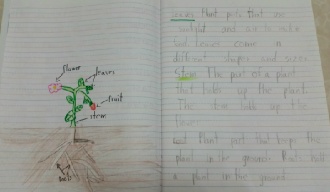 flower
leaves
fruit
stem
Roots
Leaves Plant parts that use
sunlight and air to make
food. Leaves come in
different shapes and sizes.
Stem The part of a plant
that holds up the plant.
The stem holds up the
Plant part that keeps the
plant in the ground. Roots hold
a plant in the ground